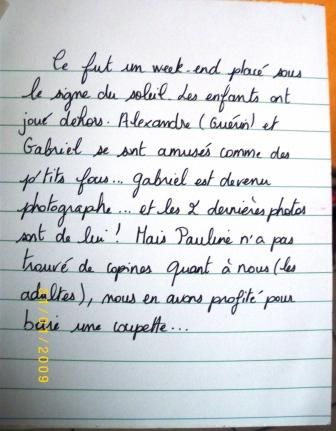 Ce fut un week-end placé sous
le signe du soleil. Les enfants ont
joué dehors. Alexandre (Guérin) et
Gabriel se sont amusés comme des
p'tits fous... Gabriel est devenu
photographe... et les 2 dernières photos
sont de lui ! Mais Pauline n'a pas
trouvé de copines. Quant à nous (les
adultes), nous en avons profité pour
boire une coupette...
2009